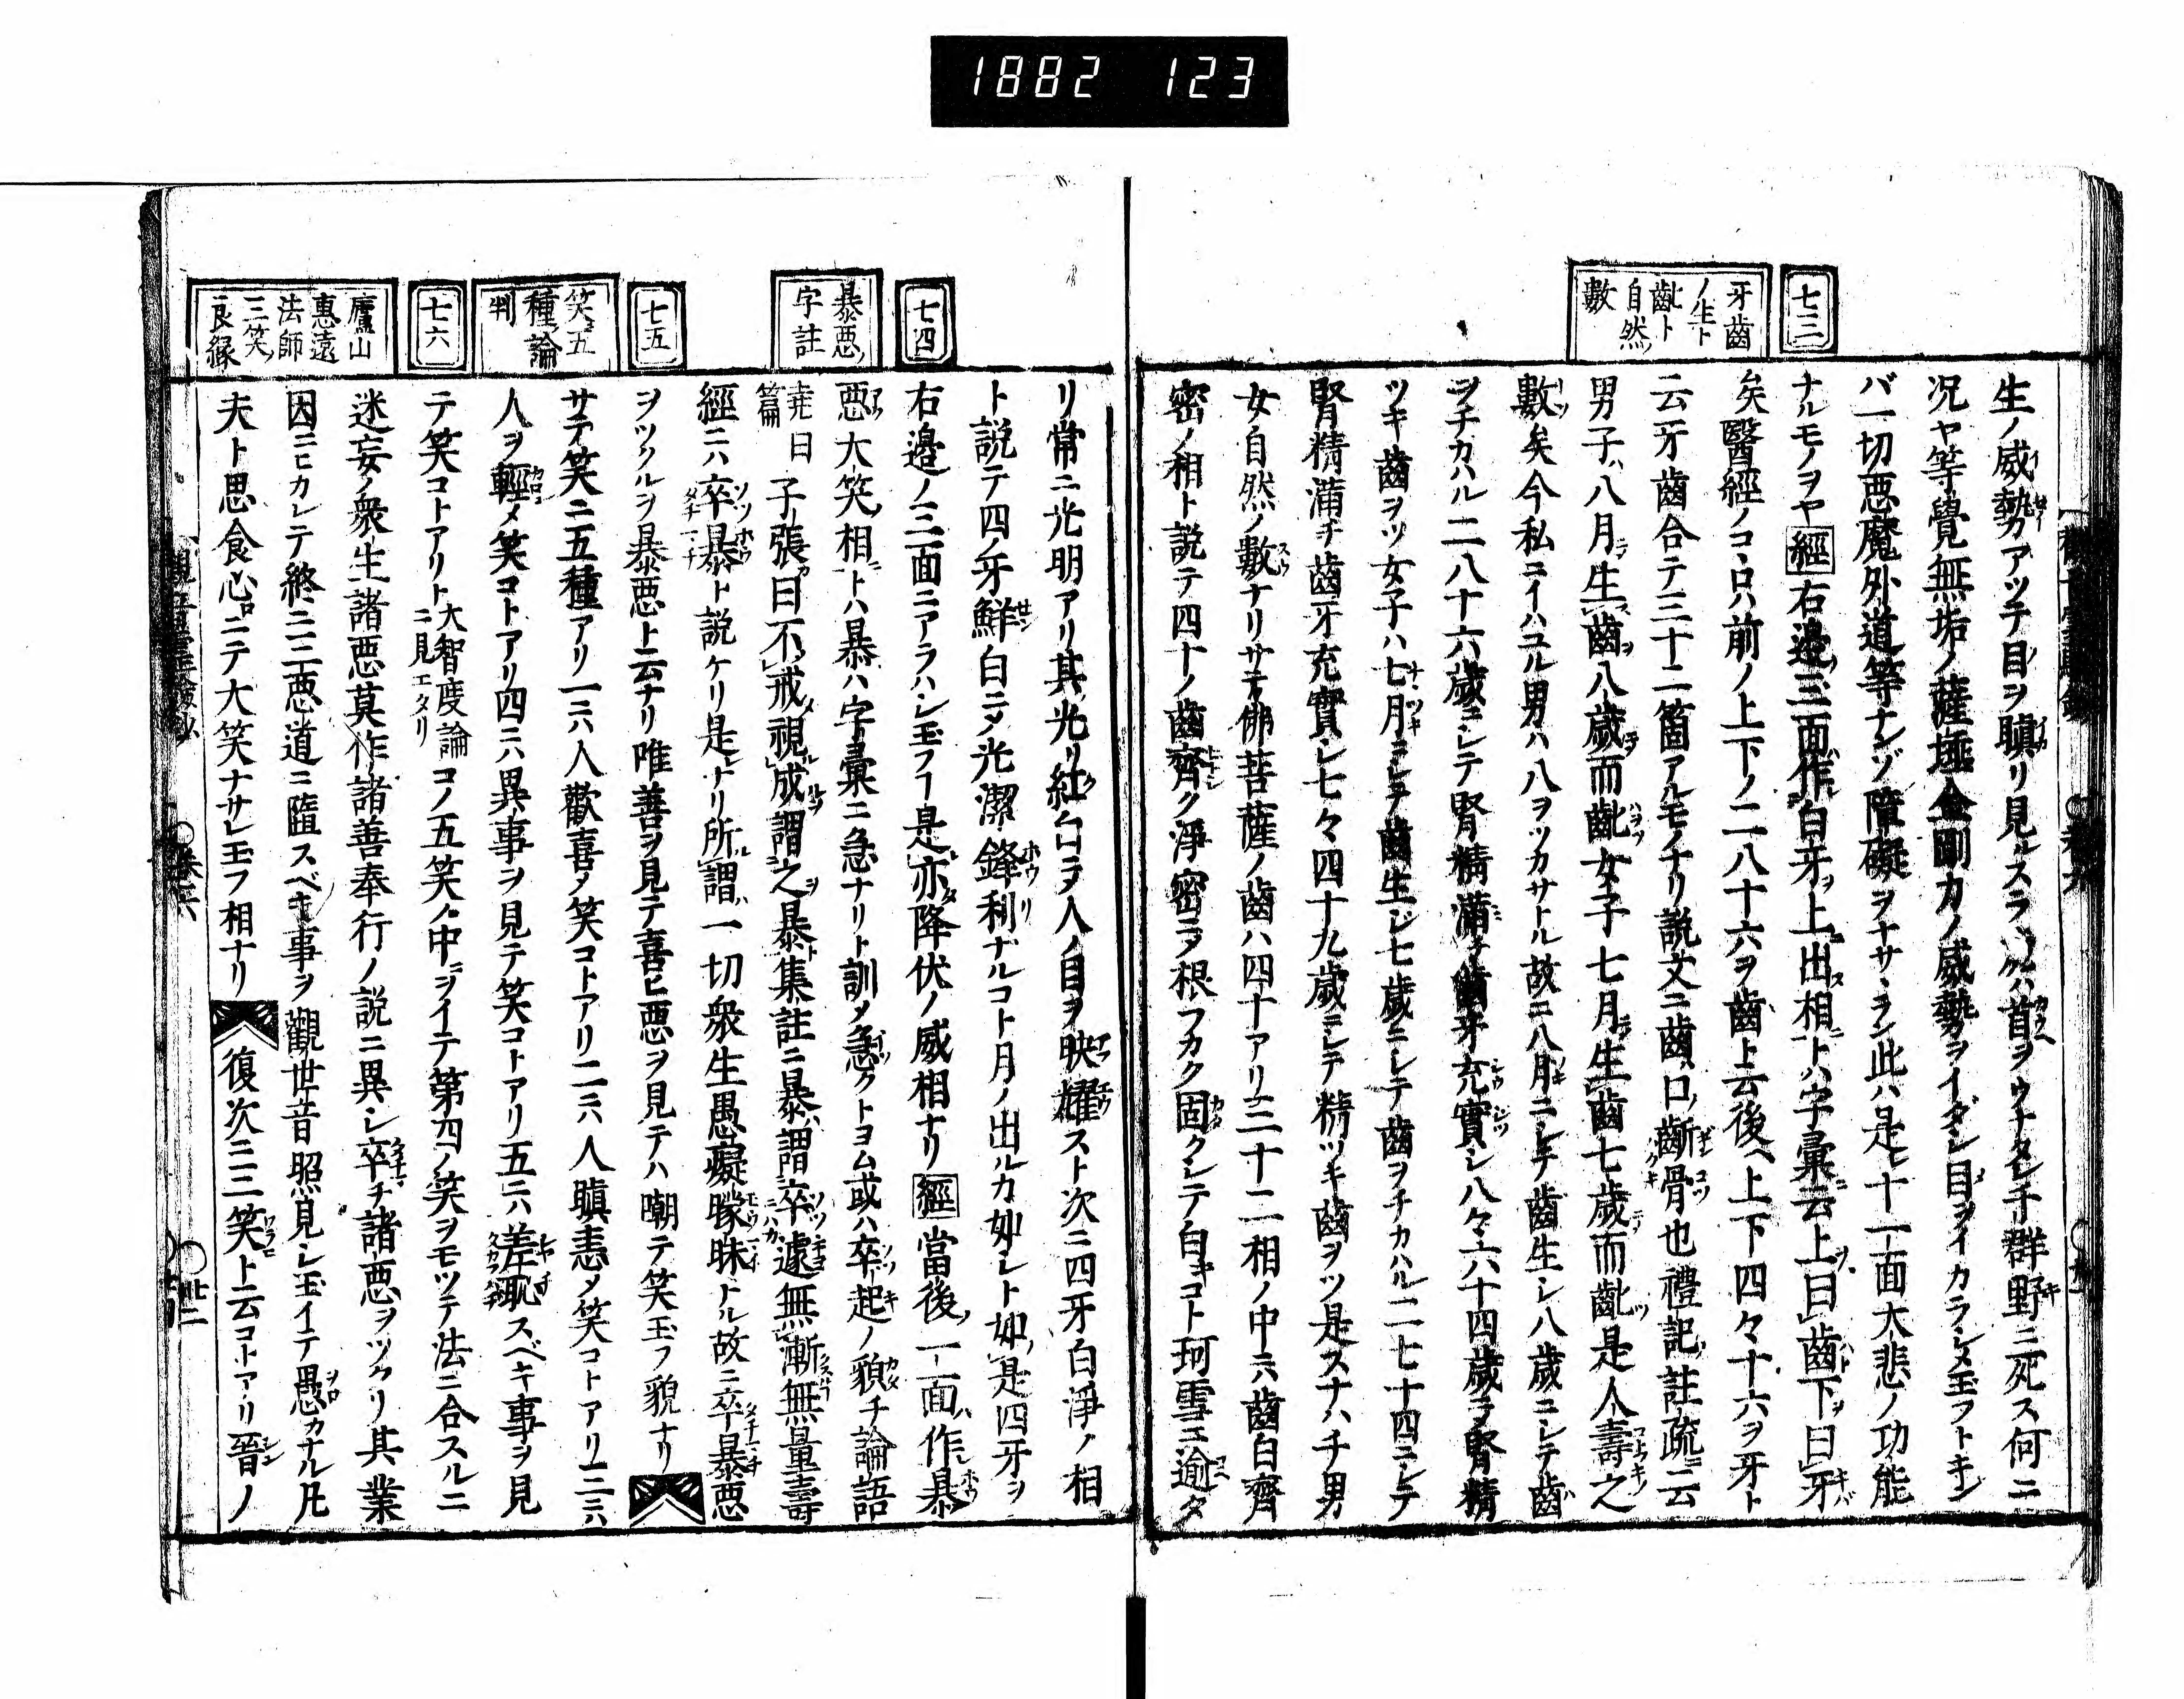 1882 123
七三
牙齒
ノ生ト
齔ト
自然ノ
數
生ノ威勢アツテ目ヲ瞋リ見ルスラ首ヲウナタレ千群野ニ死ス何ニ
況ヤ等覺無垢ノ薩埵金剛力ノ威勢ヲイダシ目ヲイカラシメ玉フトキン
バ一切悪魔外道等ナンゾ障礙ヲナサヽラン此ハ是レ十一面大悲ノ功能
ナルモノヲヤ經右邊ノ三面作白牙ヲ上ニ出ス相ニトハ字彙ニ云上ヲ曰齒ト下ヲ曰牙ト
矣醫經ノコヽロハ前ノ上下ノ二八十六ヲ齒ト云後ヘ上下四々十六ヲ牙ト
云牙齒合テ三十二箇アルモノナリ説文ニ齒ハ口ノ齗骨也禮記ノ註疏ニ云
男子ハ八月生齒八歲而齔女子七月生齒七歲而齔是人壽之
數矣今私ニイハユル男ハ八ヲツカサトル故ニ八月ニシテ齒生シ八歲ニシテ齒
ヲチカハル二八十六歲ニシテ腎精滿チ齒牙充實シ八々六十四歲ニテ腎精
ツキ齒ヲツ女子ハ七月ニシテ齒生ジ七歲ニシテ齒ヲチカハル二七十四ニシテ
腎精滿チ齒牙充實シ七々四十九歲ニシテ精ツキ齒ヲツ是スナハチ男
女自然ノ數ナリサテ佛菩薩ノ齒ハ四十アリ三十二相ノ中ニハ齒白齊
密ノ相ト説テ四十ノ齒齊ク淨密ニテ根フカク固クシテ白キコト珂雪ニ逾タ
七四
暴悪ノ
字註
七五
笑ニ五
種ノ論
判
七六
廬山
惠遠
法師
三笑ノ
良縁
リ常ニ光明アリ其ノ光リ紅白ニテ人ノ目ヲ映耀スト次ニ四牙白淨ノ相
ト説テ四ノ牙鮮白ニメ光潔鋒利ナルコト月ノ出ルカ如シト如是四牙ヲ
右邊ノ三面ニアラハシ玉フ是亦降伏ノ威相ナリ經當後ノ一面作暴
悪大笑ノ相トハ暴ハ字彙ニ急ナリト訓メ急クトヨム或ハ卒起ノ貌チ論語
堯曰篇子張曰不戒視成謂之暴集註ニ暴謂卒遽無漸無量壽
經ニハ卒暴ト説ケリ是レナリ所謂一切衆生愚癡矇昧トル故ニ卒暴悪
ヲツクルヲ暴悪ト云ナリ唯善ヲ見テ喜ヒ悪ヲ見テハ嘲テ笑玉フ貌ナリ
サテ笑ニ五種アリ一ニハ人歡喜メ笑コトアリ二ニハ人瞋恚メ笑コトアリ三ニハ
人ヲ輕メ笑コトアリ四ニハ異事ヲ見テ笑コトアリ五ニハ羞恥スベキ事ヲ見
テ笑コトアリト大智度論ニ見エタリコノ五笑ノ中ヲイテ第四ノ笑ヲモツテ法ニ合スルニ
迷妄ノ衆生諸悪莫作諸善奉行ノ説ニ異シ卒チ諸悪ヲツクリ其業
因ニヒカレテ終ニ三悪道ニ隨スベキ事ヲ觀世音照見シ玉イテ愚カナル凡
夫ト思食心ニテ大笑ナサレ玉フ相ナリ復次ニ三笑ト云コトアリ晉ノ